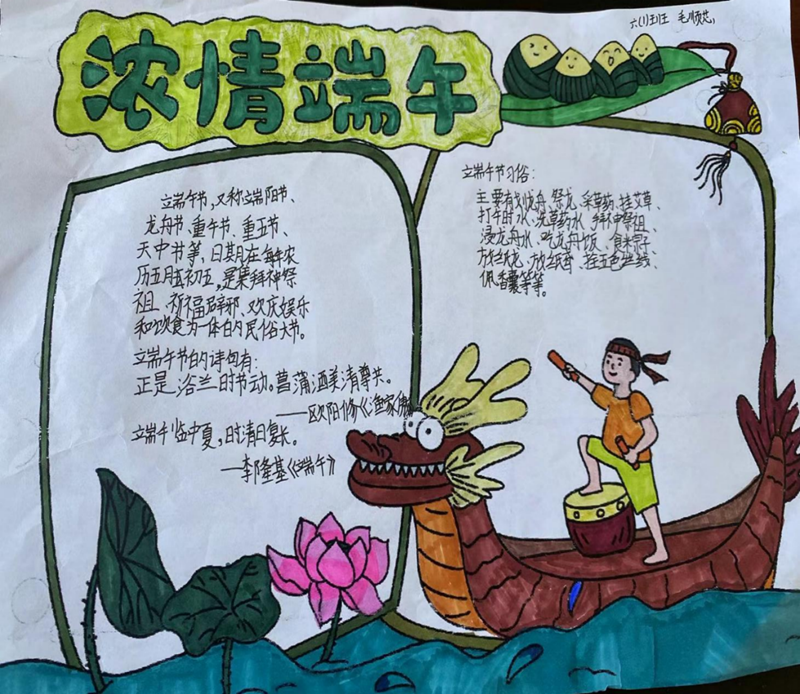 浓情端午
六(1)班 毛
端午节,又称端阳节、
龙舟节、重午节、重五节、
天中节等,日期在每年农
历五月初五,是集拜神祭
祖、祈福辟邪、欢庆娱乐
和饮食为一体的民俗大节。
端午节的诗句有:
正是浴兰时节动。菖蒲酒美清尊共。
——欧阳修《渔家傲
端午临中夏,时清日复长。
—李隆基《端午》
端午节习俗:
主要有扒龙舟、祭龙、采草药、挂艾草、
打午时水、洗草药水、拜神祭祖、
浸龙舟水、吃龙舟饭、食粽子
放纸龙、放纸鸢、拴五色丝线、
佩香囊等等。